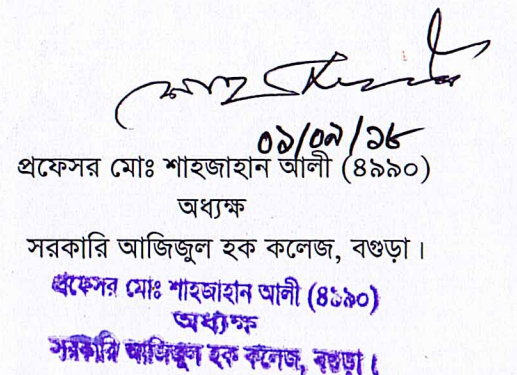 ০১/০৯/১৮
প্রফেসর মোঃ শাহজাহান আলী (৪৯৯০)
অধ্যক্ষ
সরকারি আজিজুল হক কলেজ, বগুড়া।
প্রফেসর মোঃ শাহজাহান আলী (৪৯৯০)
অধ্যক্ষ
সরকারি আজিজুল হক কলেজ, বগুড়া।